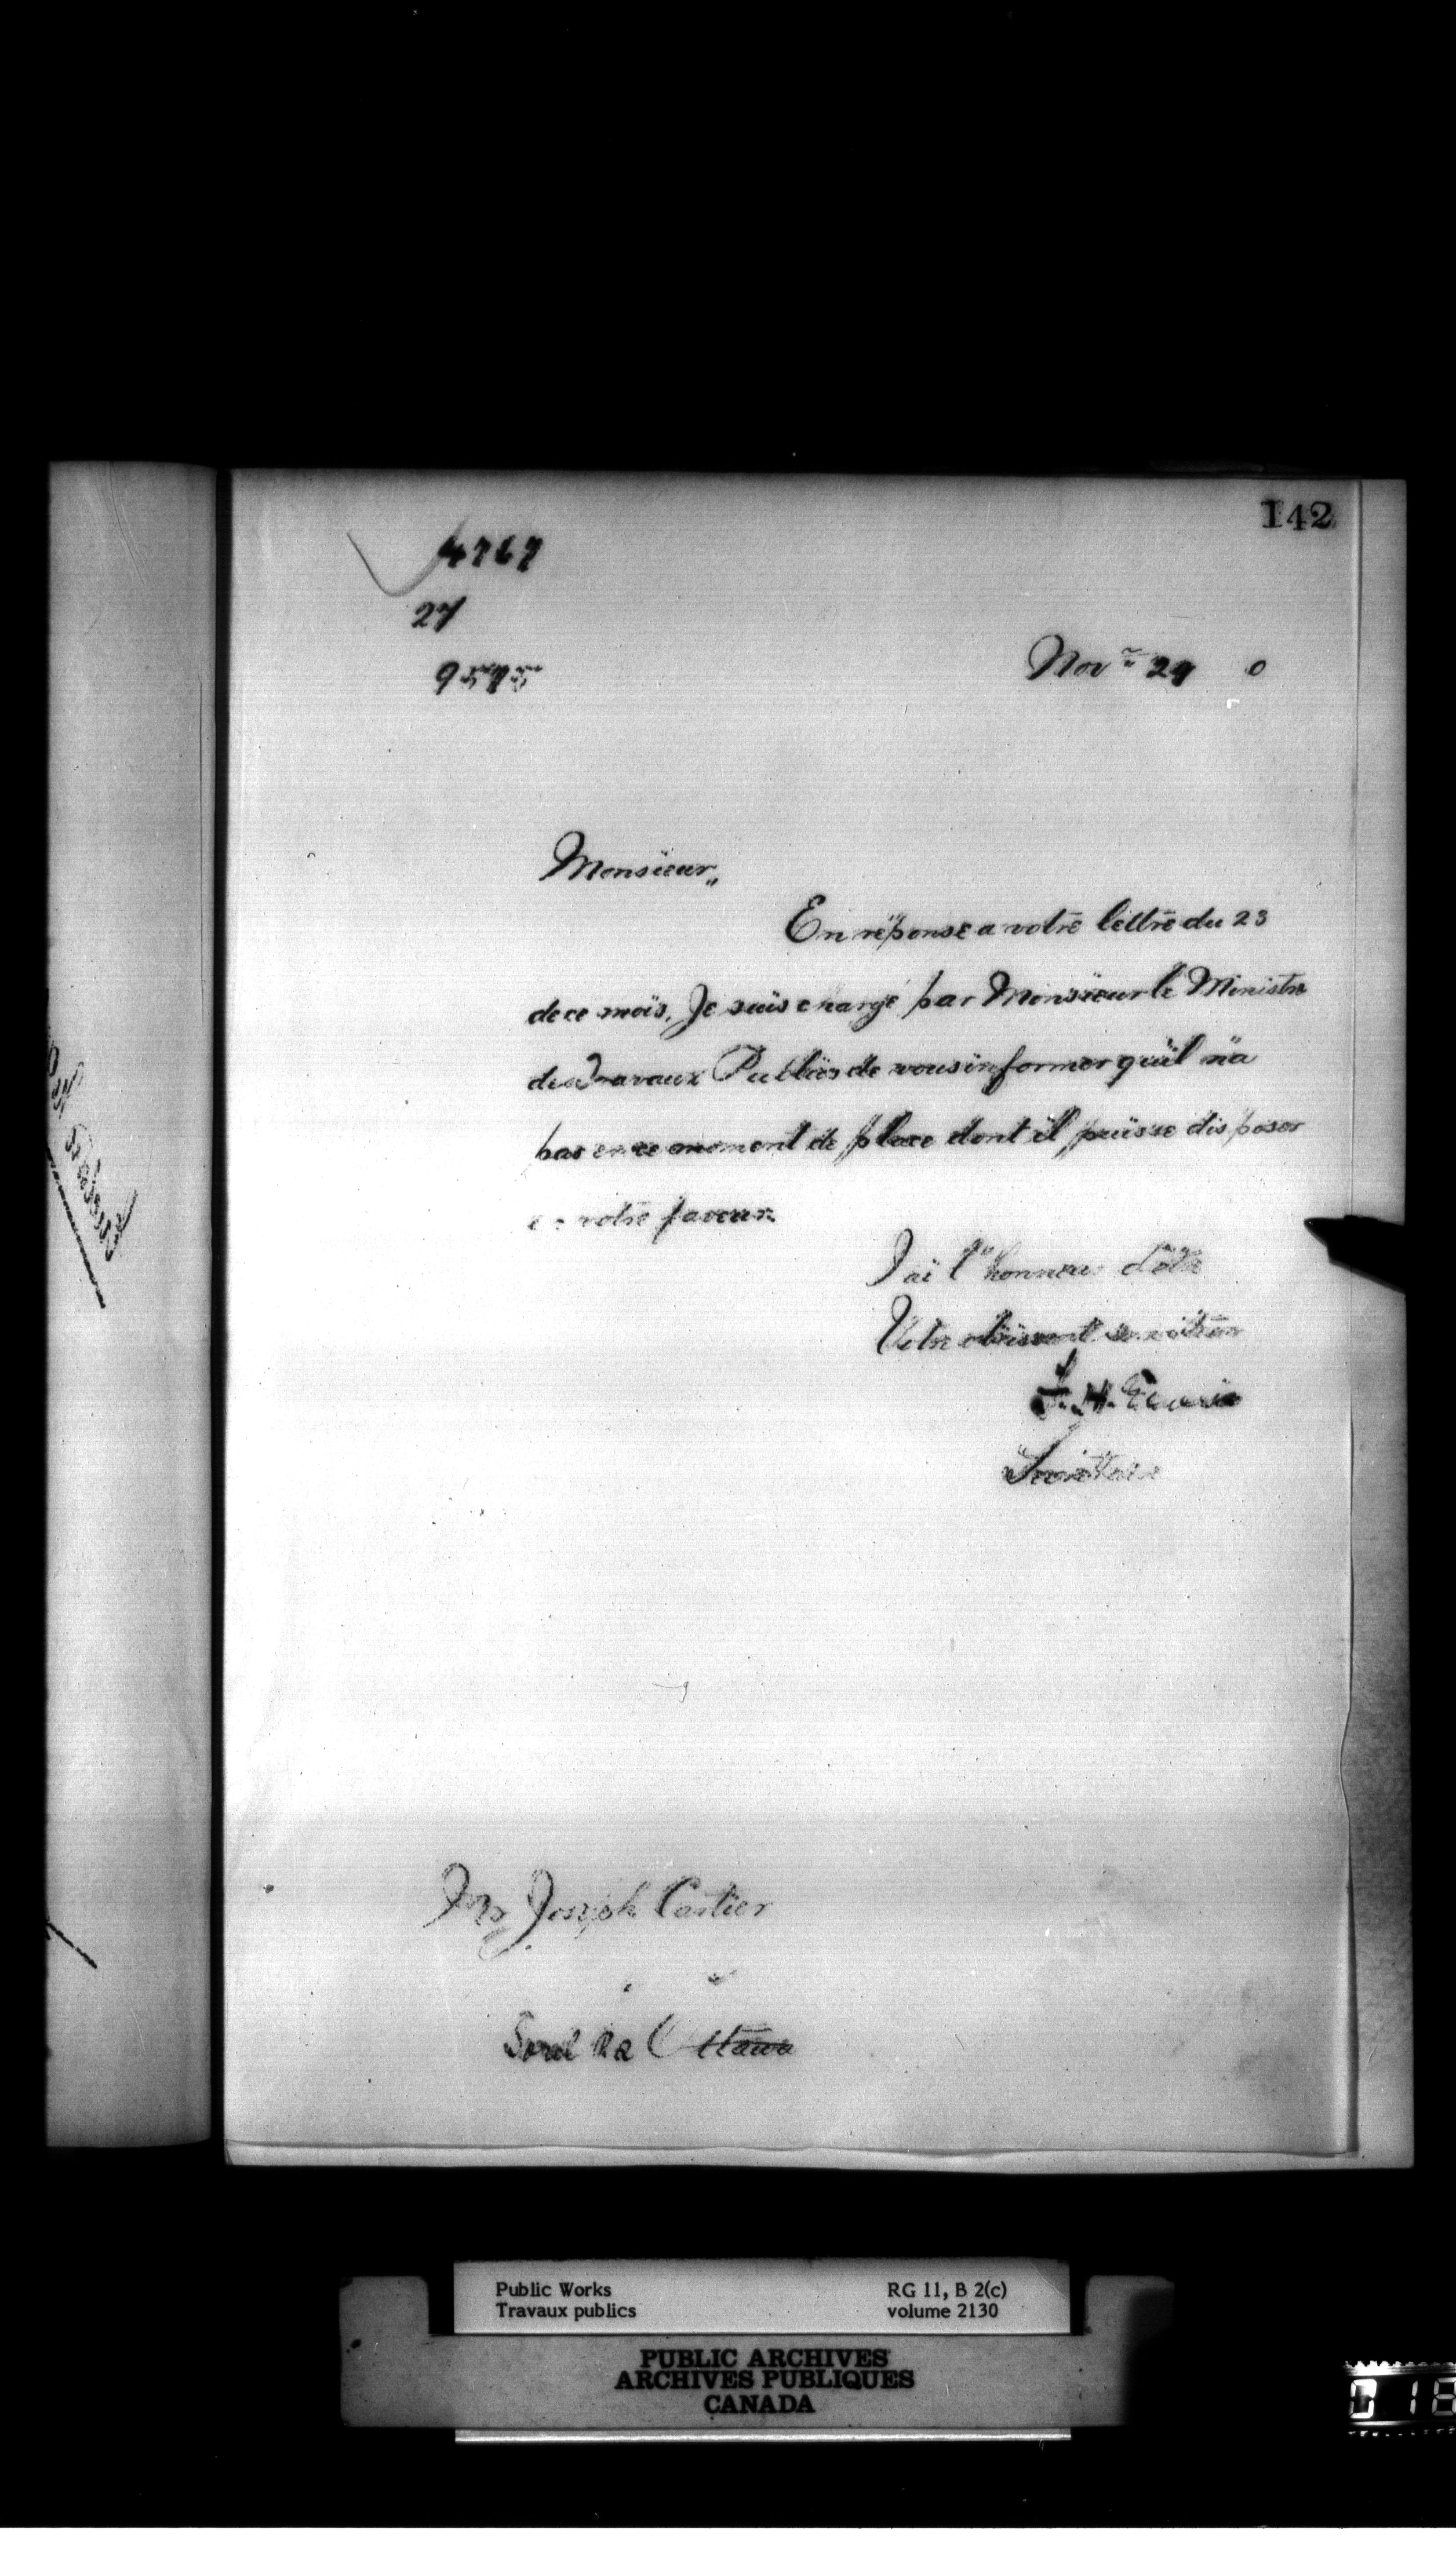 142
4767
27
9575
Nov. 29 0
Monsieur,
En réponse a votre lettre du 23
de ce mois, Je suis chargé par Monsieur le Ministre
des Travaux Publics de vous informer qu'il n'a
pas en ce moment de place dont il puisse disposer
en votre faveur.
J'ai l'honneur d'être
Votre obéissant serviteur
F. H. Ennis
Secrétaire
Joseph Cartier
Sorel P.Q. Ottawa
Public Works
Travaux publics
RG 11, B 2(c)
volume 2130
PUBLIC ARCHIVES
ARCHIVES PUBLIQUES
CANADA